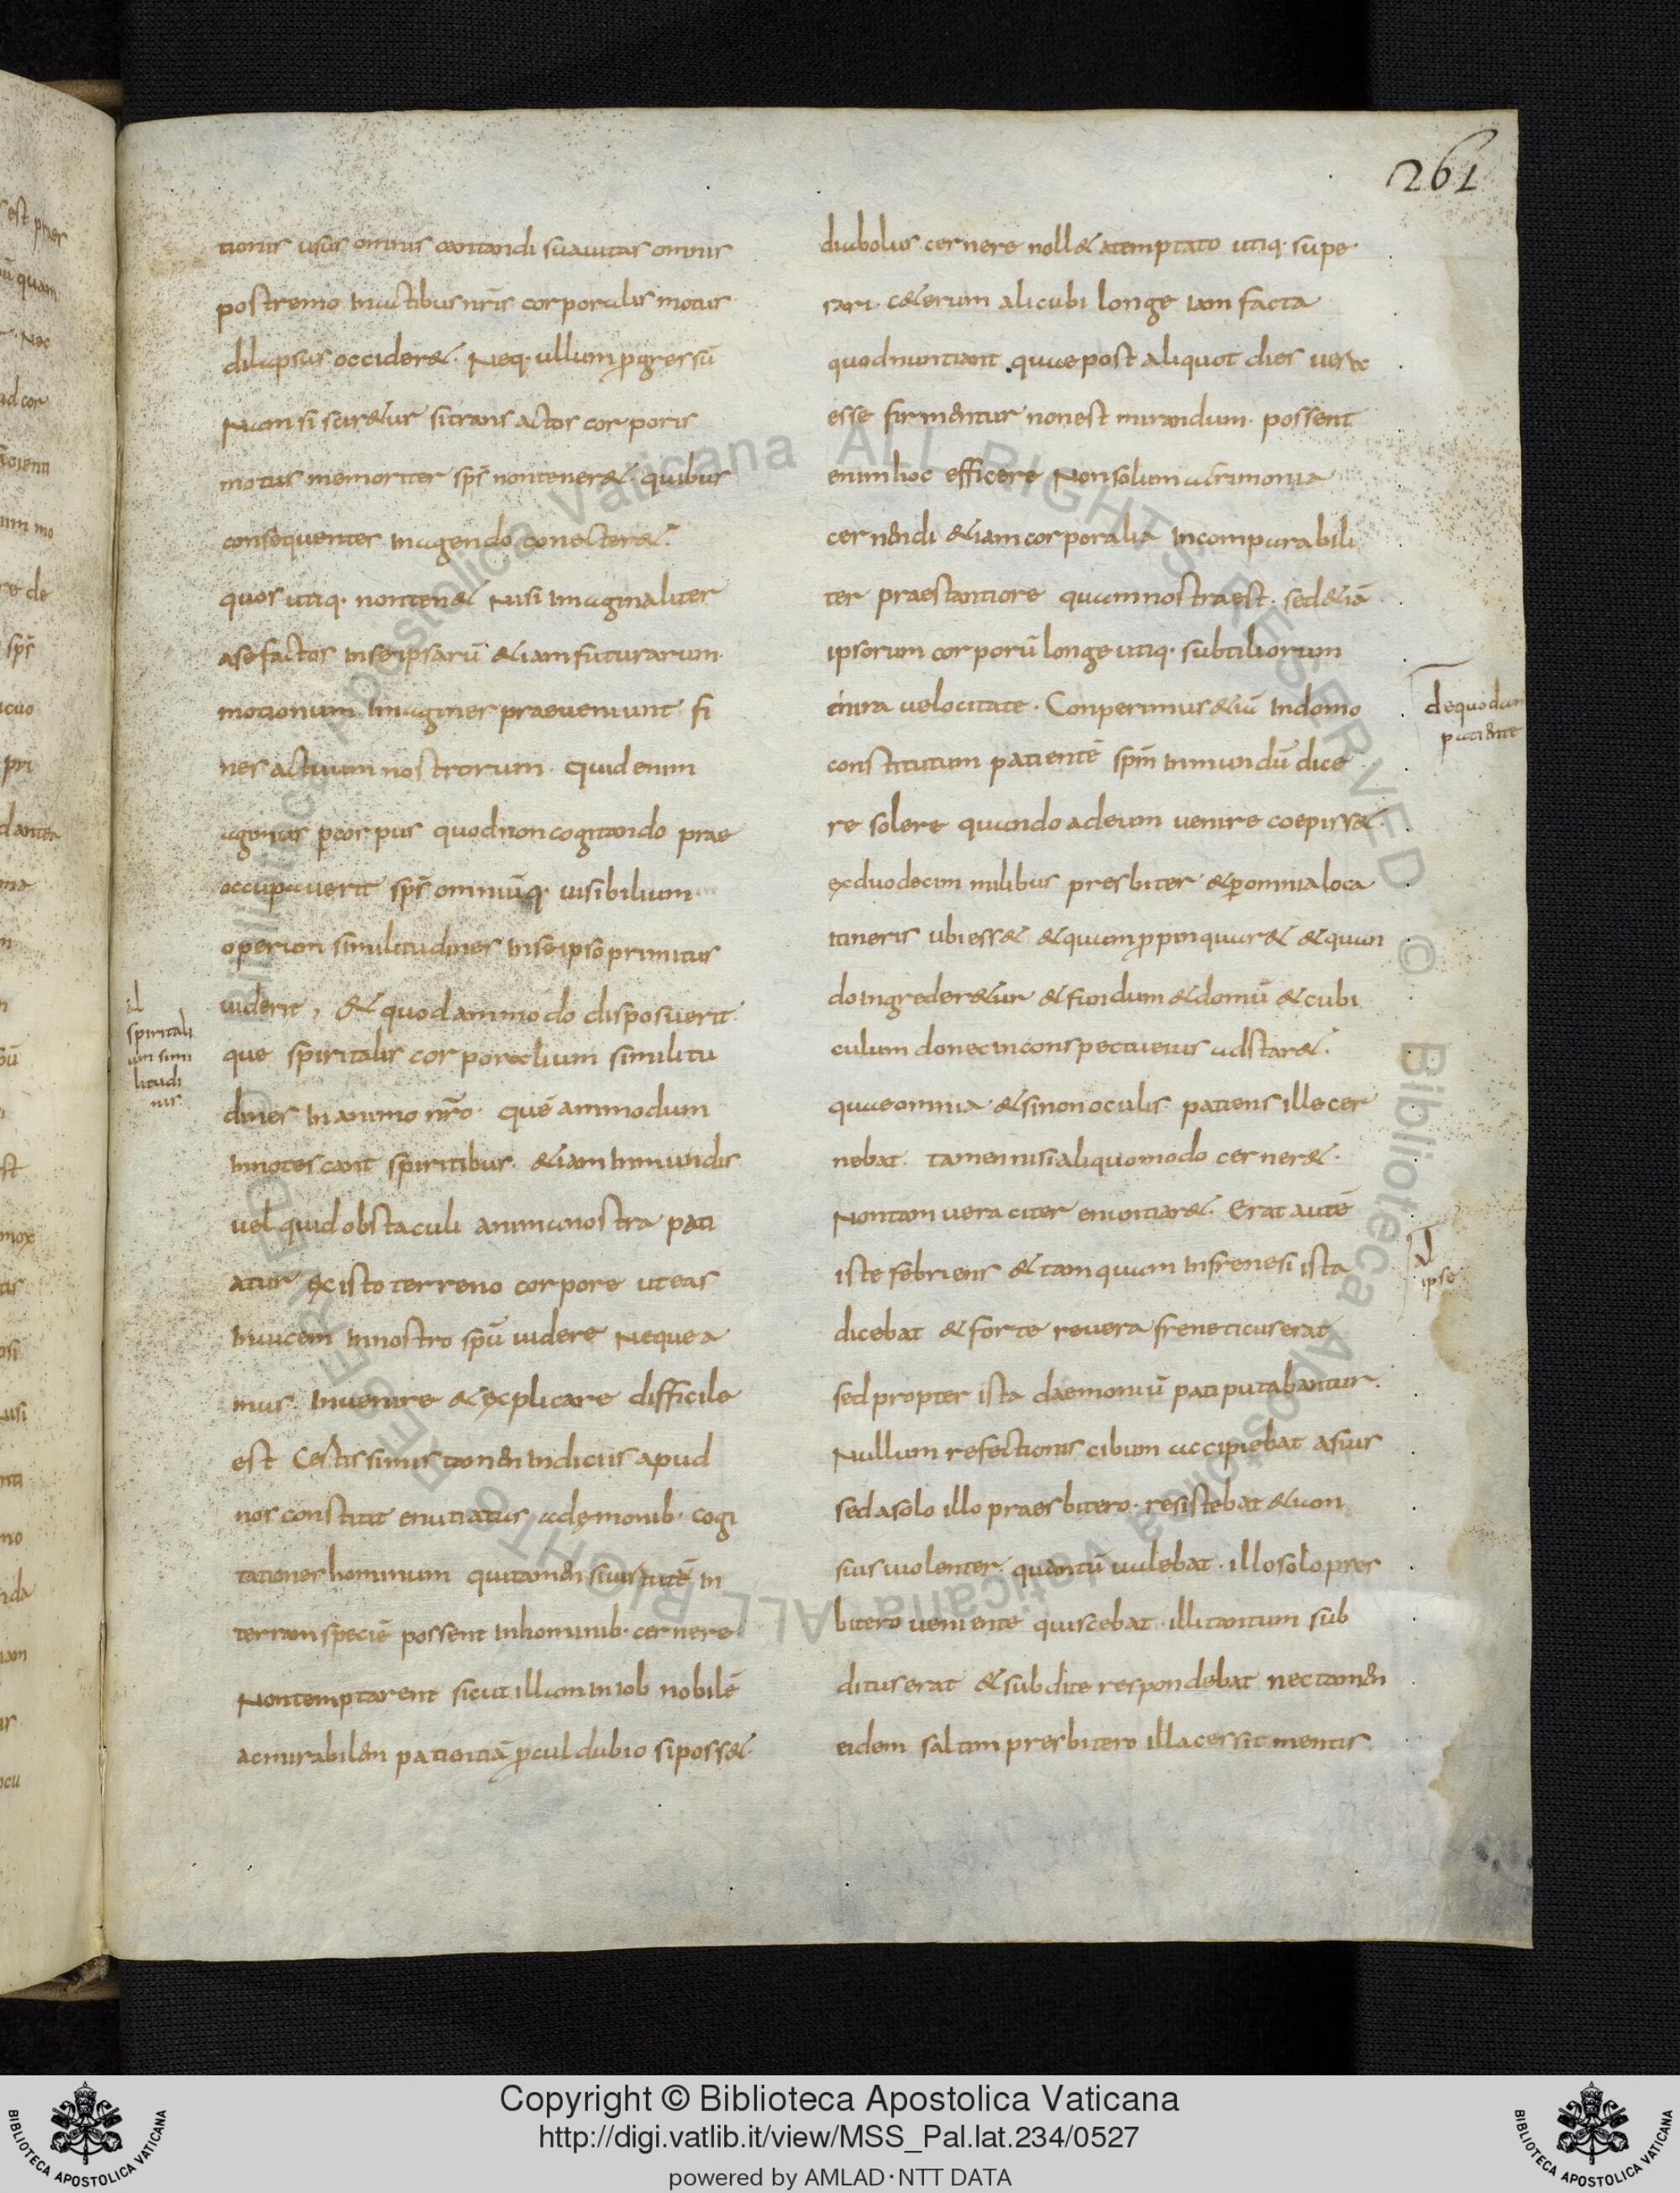 261
tionis usus omnis cantandi suauitas omnis
postremo inactibus nr̄is corporalis motus
dilapsus occider&. Neq· ullum p̱gressū
Nam si scir&ur sitrans actos corporis
motus memoriter sp̄s nontener&· quibus
consequenter inagendo conecter&.
quos utiq· nonten& Nisi imaginaliter
asefactos inseipsarū &iam futurarum
motionum imagines praeueniunt fi
nes actuum nostrorum· quid enim
agimus ꝑcorpus quod non cogitando prae
occupauerit sp̄s omniūq· uisibilium
operum similitudines inseipso primitus
uiderit, & quodammodo disposuerit
que spiritalis corporalium similitu
dines in animo nr̄o· quē ammodum
innotescant spiritibus· &iam inmundis
uel quid obstaculi anima nostra pati
atur ex isto terreno corpore ut eas
inuicem innostro spū uidere Nequea
mus· inuenire & explicare difficile
est Certissimis tamen indiciis apud
nos constitit enutiatas adęmonib· cogi
tationes hominum qui tamen siuirtutē in
ternam speciē possent inhominib· cernere
Nontemptarent sicut illam iniob nobilē
acmirabilem patientiā p̱cul dubio siposs&
al
spiritali
um simi
litudi
nis
diabolus cernere noll& atemptato utiq· supe
rari· c&erum alicubi longe iam facta
quod nuntiant quae post aliquot dies uera
esse firmentur nonest mirandum· possent
enim hoc efficere Nonsolum acrimonia
cernendi &iam corporalia incomparabili
ter praestantiore quam nostra est· sed&iā
ipsorum corporū longe utiq· subtiliorum
mira uelocitate· Conperimus &iā indomo
constitutum patientē sp̄m inmundū dice
re solere quando adeum uenire coepiss&
exduodecim milibus presbiter &ꝑomnia loca
itineris ubi ess& &quam p̱pinquar& &quan
do ingreder&ur &fundum &domū &cubi
culum donec inconspectu eius adstar&.
quae omnia &si non oculis patiens ille cer
nebat· tamen nisi aliquo modo cerner&
Nontam ueraciter enuntiar&. Erat autē
iste febriens & tamquam infrenesi ista
dicebat & forte reuera freneticus erat
sed propter ista daemoniū pati putabantur
Nullum refectionis cibum accipiebat asuis
sed asolo illo praesbitero· resistebat &iam
suis uiolenter quantū ualebat· illo solo pres
bitero ueniente quiscebat· illi tantum sub
ditus erat & subdite respondebat nec tamen
eidem saltim presbitero illa cessit mentis
de quodam
patiente
al
ipse
Copyright © Biblioteca Apostolica Vaticana
http://digi.vatlib.it/view/MSS_Pal.lat.234/0527
powered by AMLAD·NTT DATA
BIBLIOTECA APOSTOLICA VATICANA
BIBLIOTECA APOSTOLICA VATICANA